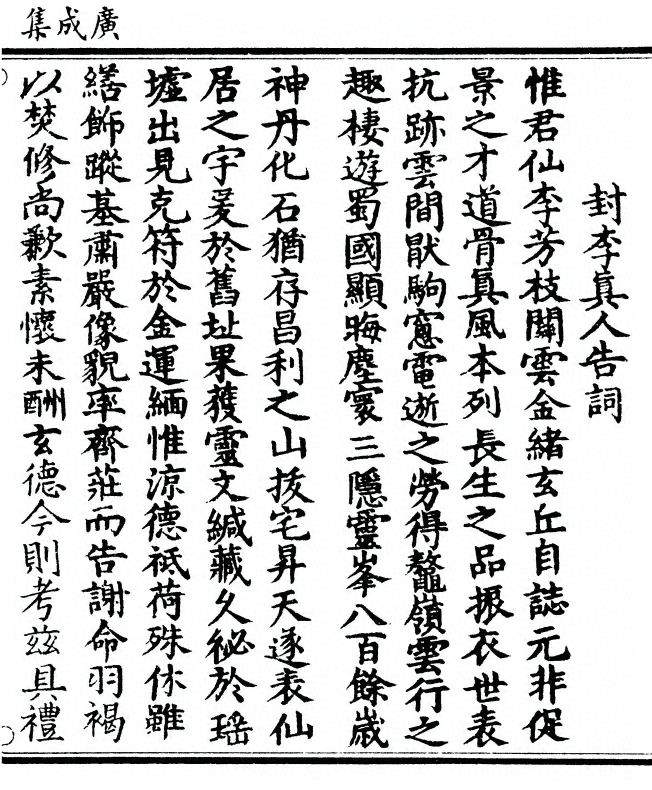 廣成集
封李真人告詞
惟君仙李芳枝闢雲金緒玄丘自誌元非促
景之才道骨真風本列長生之品振衣世表
抗跡雲間猒駒窻電逝之勞得鼇嶺雲行之
趣棲遊蜀國顯晦塵寰三隱靈峯八百餘歲
神丹化石猶存昌利之山拔宅昇天遂表仙
居之宇爰於舊址果獲靈文緘藏久袐於瑶
墟出見克符於金運緬惟涼德祗荷殊休雖
繕飾蹤基肅嚴像貌率齊莊而告謝命羽褐
以焚修尚歉素懷未酬玄德今則考兹具禮